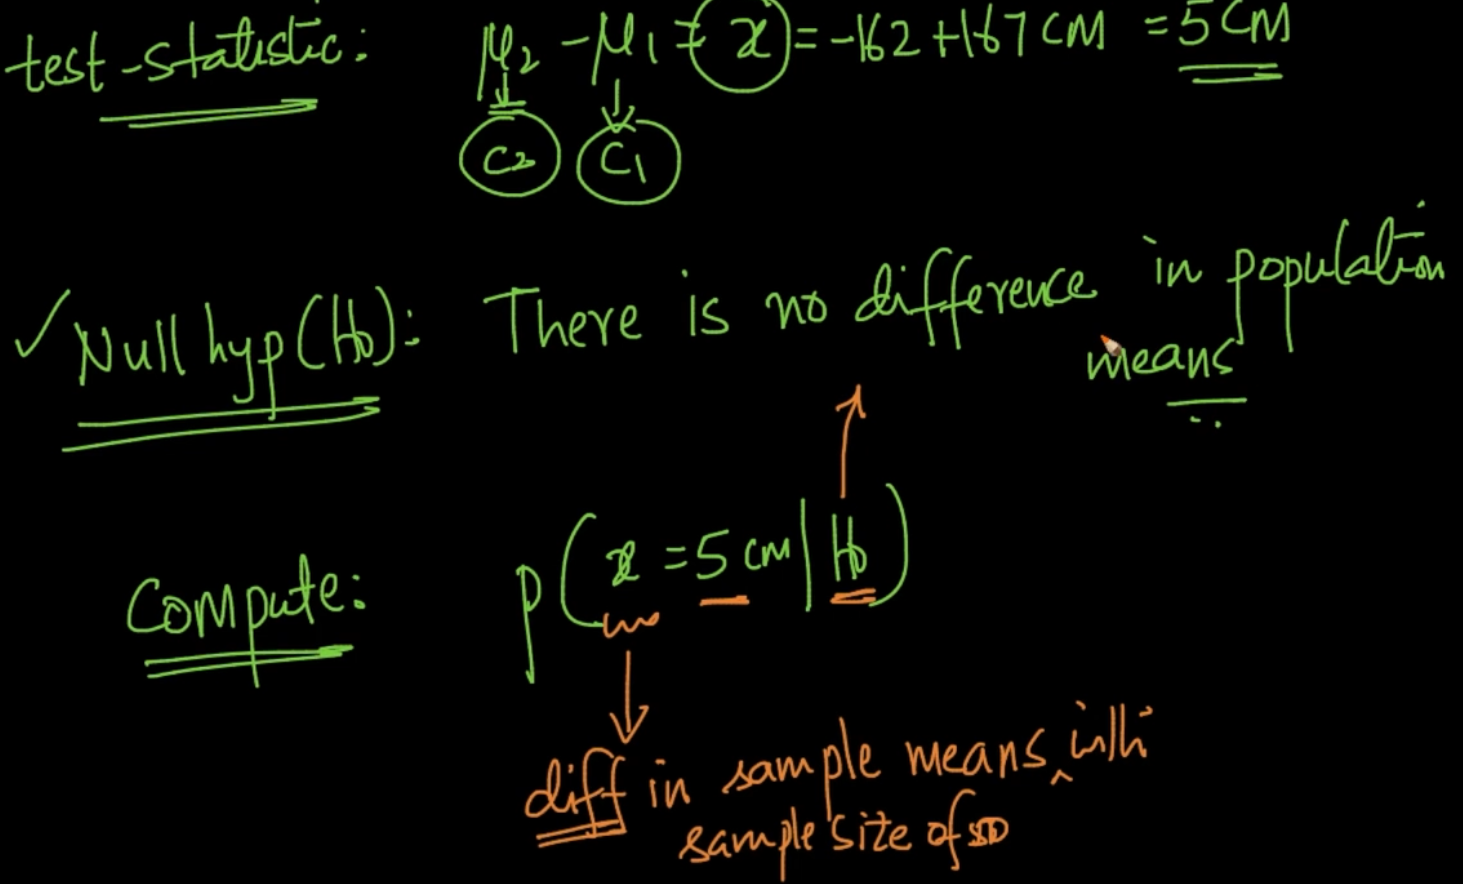 test-statistic: μ2 - μ1 = x = -162 + 167 CM = 5 CM
C2 C1
✓ Null hyp (H0): There is no difference in population
means
Compute: P(x = 5 cm | H0)
diff in sample means ^
sample size of